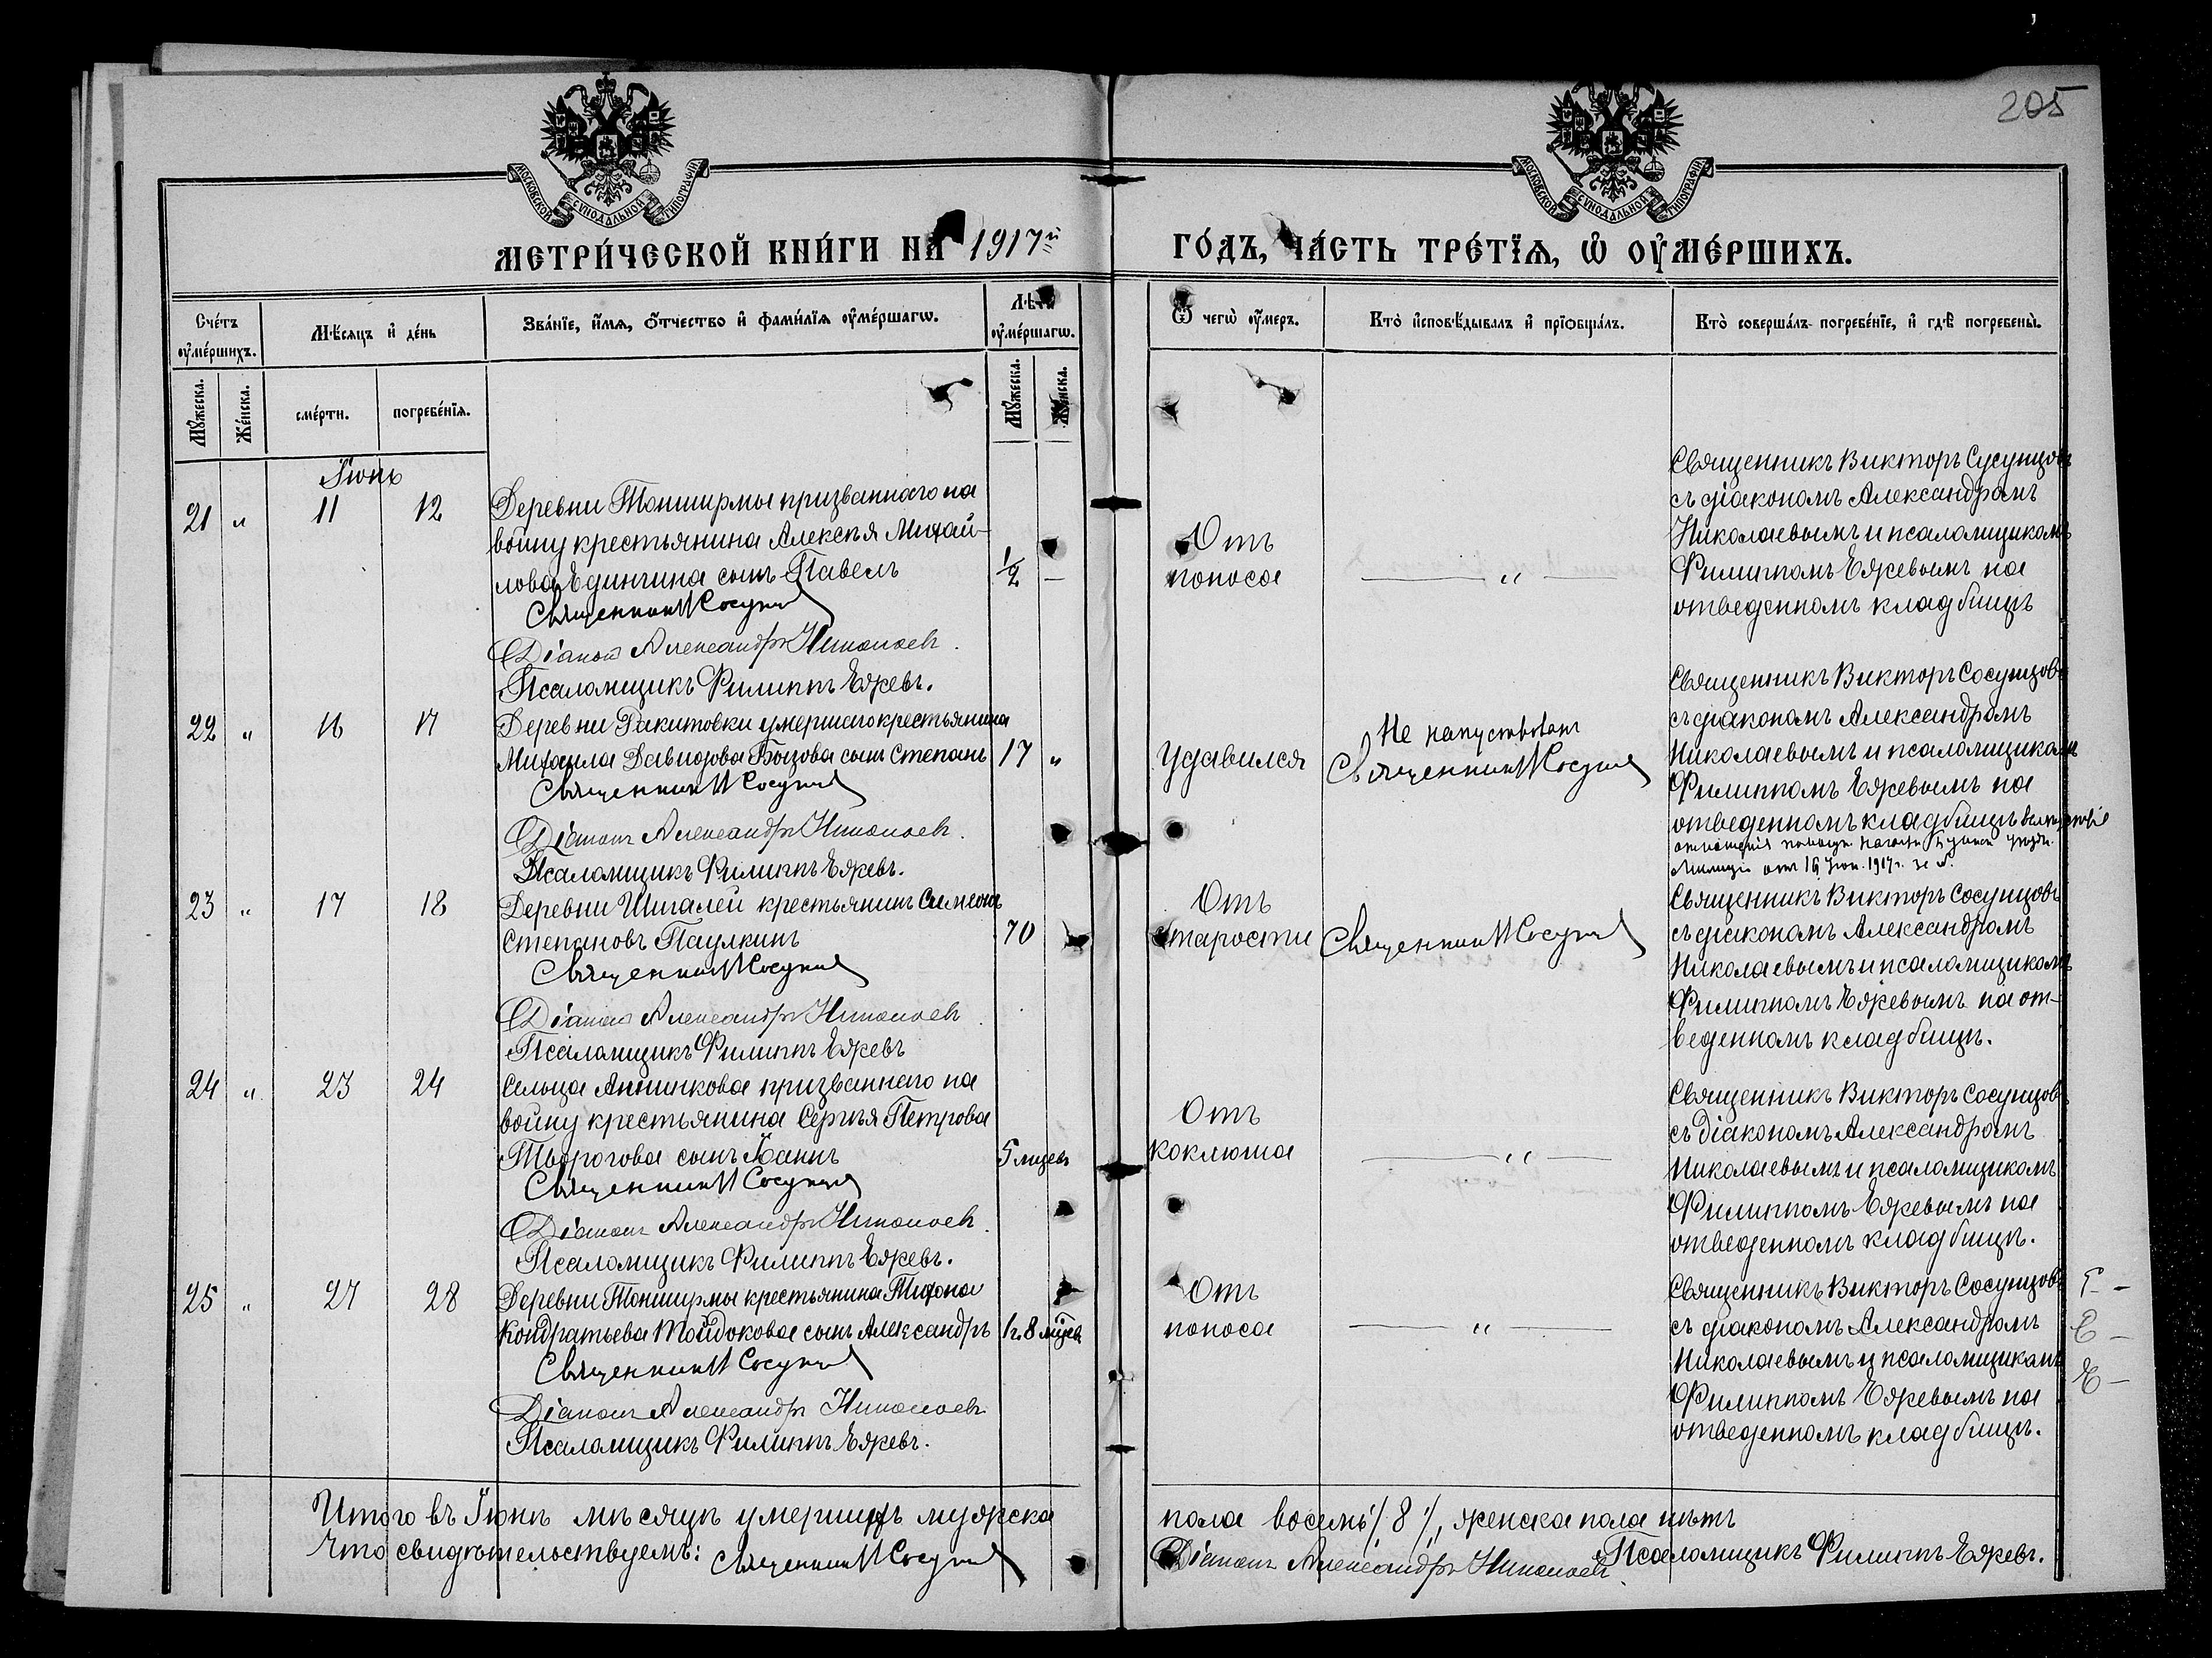 205
МОСКОВСКОЙ СѴНОДАЛЬНОЙ ТИПОГРАФІИ
МОСКОВСКОЙ СѴНОДАЛЬНОЙ ТИПОГРАФІИ
МЕТРИ́ЧЕСКОЙ КНИ́ГИ НА 1917й ГО́ДЪ, ЧА́СТЬ ТРЕ́ТІѦ, Ѡ҆ ОУ҆МЕ́РШИХЪ.
Сче́тъ оу҆ме́ршихъ.
Мѣ́сяцъ и҆ де́нь
Зва́ніе, и҆́мѧ, ѻ҆́тчество и҆ фами́лїѧ оу҆ме́ршагѡ.
Лѣта оу҆ме́ршагѡ.
Ѿ чегѡ̀ оу҆́меръ.
Кто̀ и҆сповѣ́дывалъ и҆ прїѡбща́лъ.
Кто̀ соверша́лъ погребе́нїе, и҆ гдѣ̀ погребены̀.
Мꙋ́жеска.
Же́нска.
сме́рти.
погребе́нїѧ.
Мꙋ́жеска.
Же́нска.
Іюнь
21 " 11 12
Деревни Тонширмы призваннаго на
войну крестьянина Алексѣя Михай-
лова Единчина сынъ Павелъ
1/2 —
Священник В Сосунцов
Діаконъ Александръ Николаевъ.
Псаломщикъ Филиппъ Ежевъ.
Отъ
поноса
— " —
Священникъ Викторъ Сусунцовъ
съ діакономъ Александромъ
Николаевымъ и псаломщикомъ
Филиппомъ Ежевымъ на
отведенномъ кладбищѣ
22 " 16 17
Деревни Ракитовки умершаго крестьянина
Михаила Давидова Бызова сынъ Степанъ
17 "
Священник В Сосунцов
Діаконъ Александръ Николаевъ.
Псаломщикъ Филиппъ Ежевъ.
Удавился
Не напутствован
Священник В Сосунцов
Священникъ Викторъ Сосунцовъ
съ діакономъ Александромъ
Николаевымъ и псаломщикомъ
Филиппомъ Ежевымъ на
отведенномъ кладбищѣ вслѣдствіе
отношенія
Милиціи отъ 16 Іюн. 1917 г. за №.
23 " 17 18
Деревни Шигалей крестьянинъ Симеонъ
Степановъ Паулкинъ
70
Священник В Сосунцов
Діаконъ Александръ Николаевъ.
Псаломщикъ Филиппъ Ежевъ
Отъ
старости
Священник В Сосунцов
Священникъ Викторъ Сосунцовъ
съ діакономъ Александромъ
Николаевымъ и псаломщикомъ
Филиппомъ Ежевымъ на от-
веденномъ кладбищѣ.
24 " 23 24
Сельца Аниикова призваннаго на
войну крестьянина Сергѣя Петрова
Творогова сынъ Іоаннъ
5 мцевъ
Священник В Сосунцов
Діаконъ Александръ Николаевъ.
Псаломщикъ Филиппъ Ежевъ.
Отъ
коклюша
— " —
Священникъ Викторъ Сосунцовъ
съ діакономъ Александромъ
Николаевымъ и псаломщикомъ
Филиппомъ Ежевымъ на
отведенномъ кладбищѣ.
25 " 27 28
Деревни Тонширмы крестьянина Тихона
Кондратьева Тойдокова сынъ Александръ
1 г. 8 мцев
Священник В Сосунцов
Діаконъ Александръ Николаевъ
Псаломщикъ Филиппъ Ежевъ.
Отъ
поноса
— " —
Священникъ Викторъ Сосунцовъ
съ діакономъ Александромъ
Николаевымъ и псаломщикомъ
Филиппомъ Ежевымъ на
отведенномъ кладбищѣ.
Итого въ Іюнѣ мѣсяцѣ умершихъ мужска пола восемь /8/, женска пола нѣтъ
Что свидѣтельствуемъ: Священник В Сосунцов Діаконъ Александръ Николаевъ. Псаломщикъ Филиппъ Ежевъ.